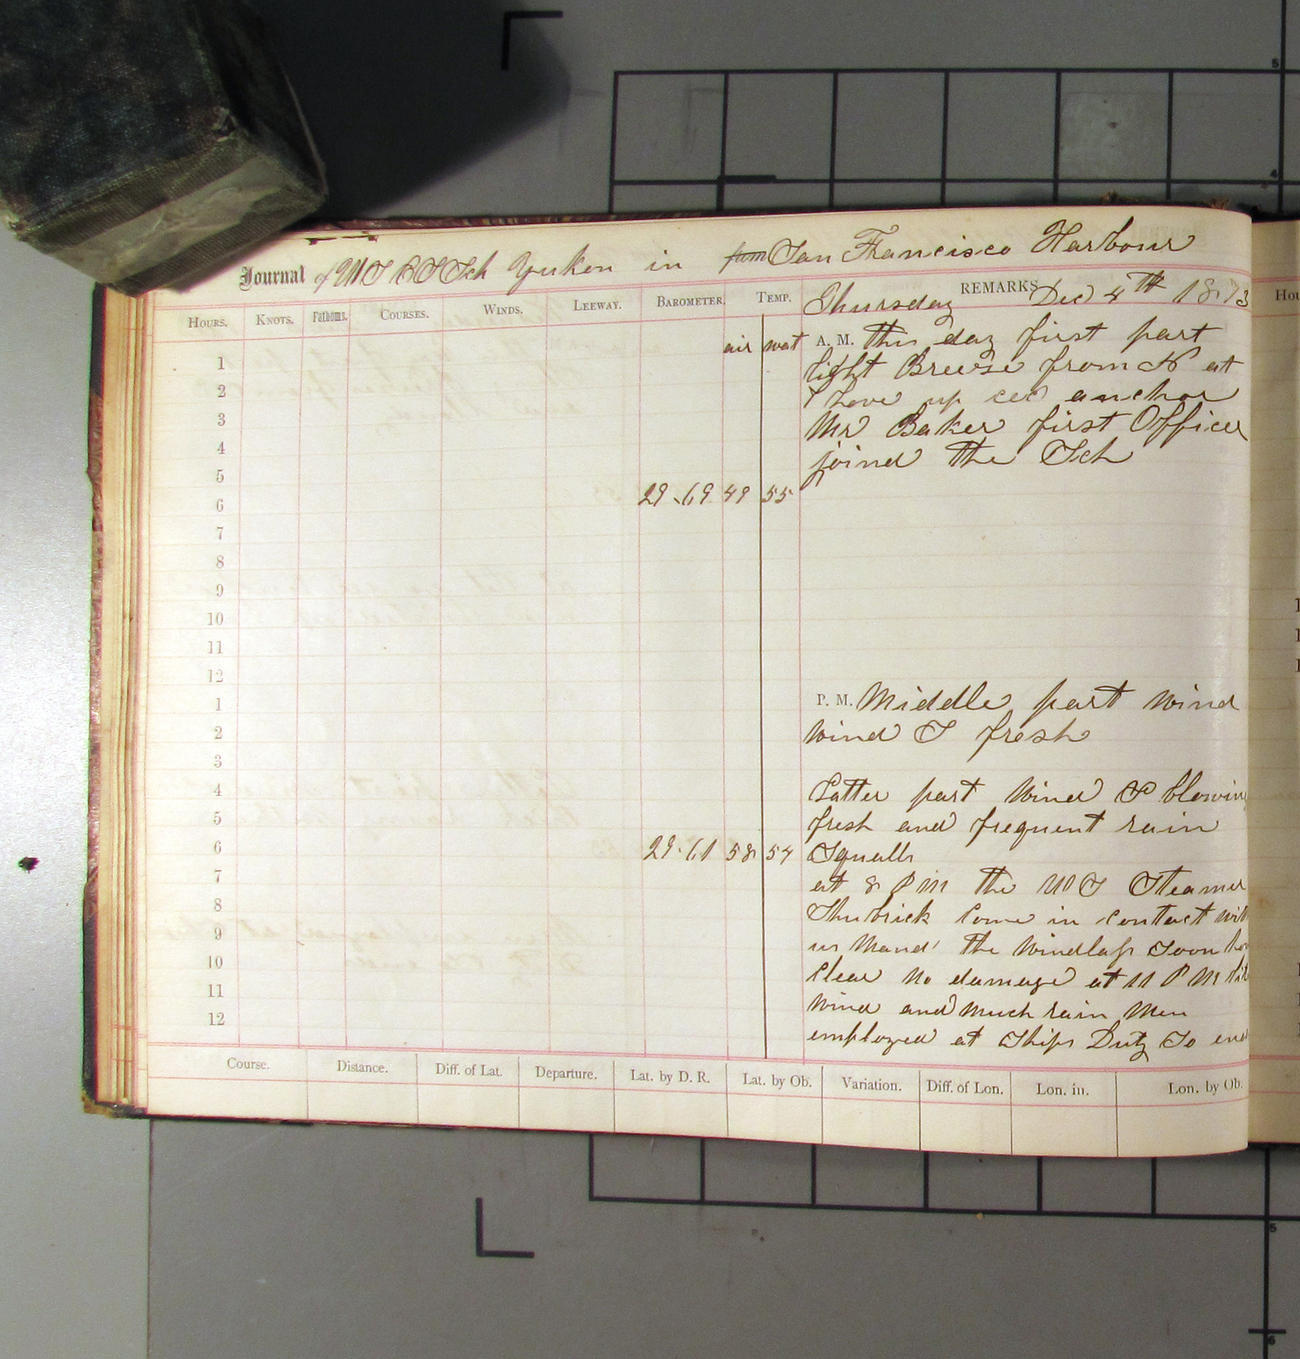 Journal of U S C S Sch Yukon in from San Francisco Harbour
HOURS. KNOTS. Fathoms. COURSES. WINDS. LEEWAY. BAROMETER. TEMP. REMARKS
Thursday Dec 4th 1873
air wat
A. M. this day first part
1
light Breese from N at
2
hove up anchor
3
Mr Baker first Officer
4
joind the Sch
5
6 29.69 49 55
7
8
9
10
11
12
1 P. M. Middle part wind
2 wind S fresh
3
4 Latter part wind S blowin
5 fresh and frequent rain
6 29.61 58 54 Squalls
7 at 8 P M the U S Steamer
8 Shubrick Come in contact with
9 us Mand the windlass Soon
10 Clear no damage at 11 P M
11 wind and much rain Men
12 employed at Ships Duty So end
Course. Distance. Diff. of Lat. Departure. Lat. by D. R. Lat. by Ob. Variation. Diff. of Lon. Lon. in. Lon. by Ob.
5
4
5
6